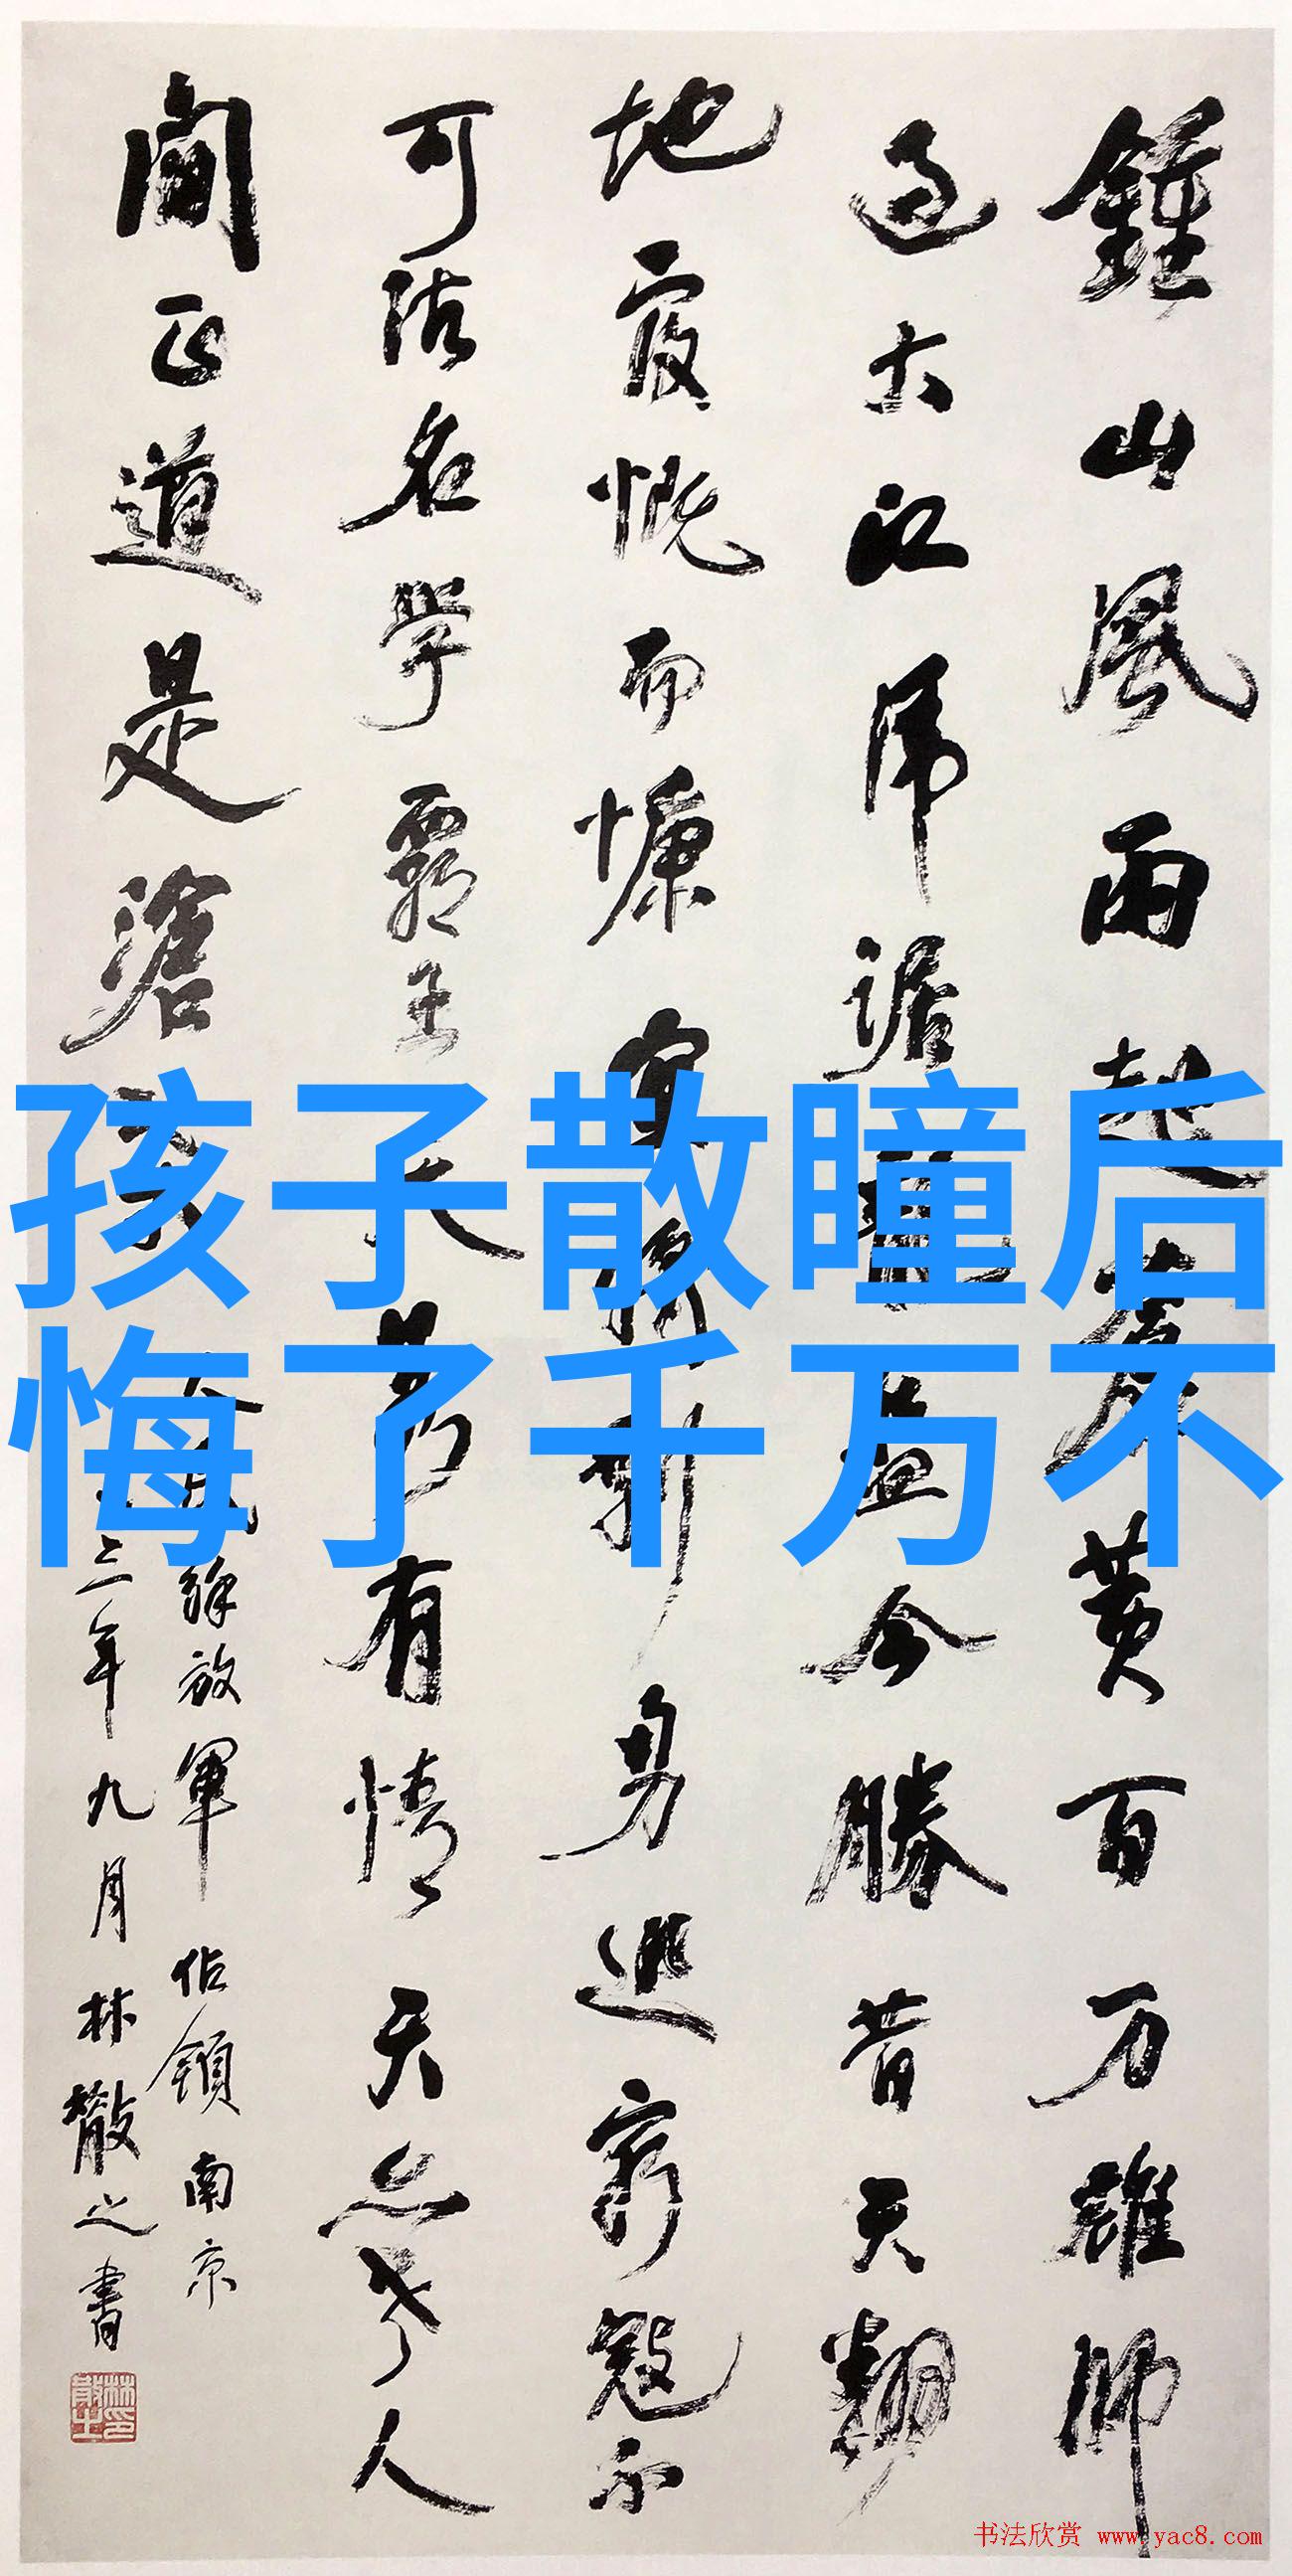 鍾山風雨起蒼黄百万雄师
过大江虎踞龍盤今勝昔天翻
地覆慨而慷宜將剩勇追窮寇不
可沽名學霸王天若有情天亦老人
間正道是滄桑
人民解放軍佔領南京
三年九月林散之書
林散之印
孩子散瞳后
悔了千万不
书法欣赏 www.yac8.com